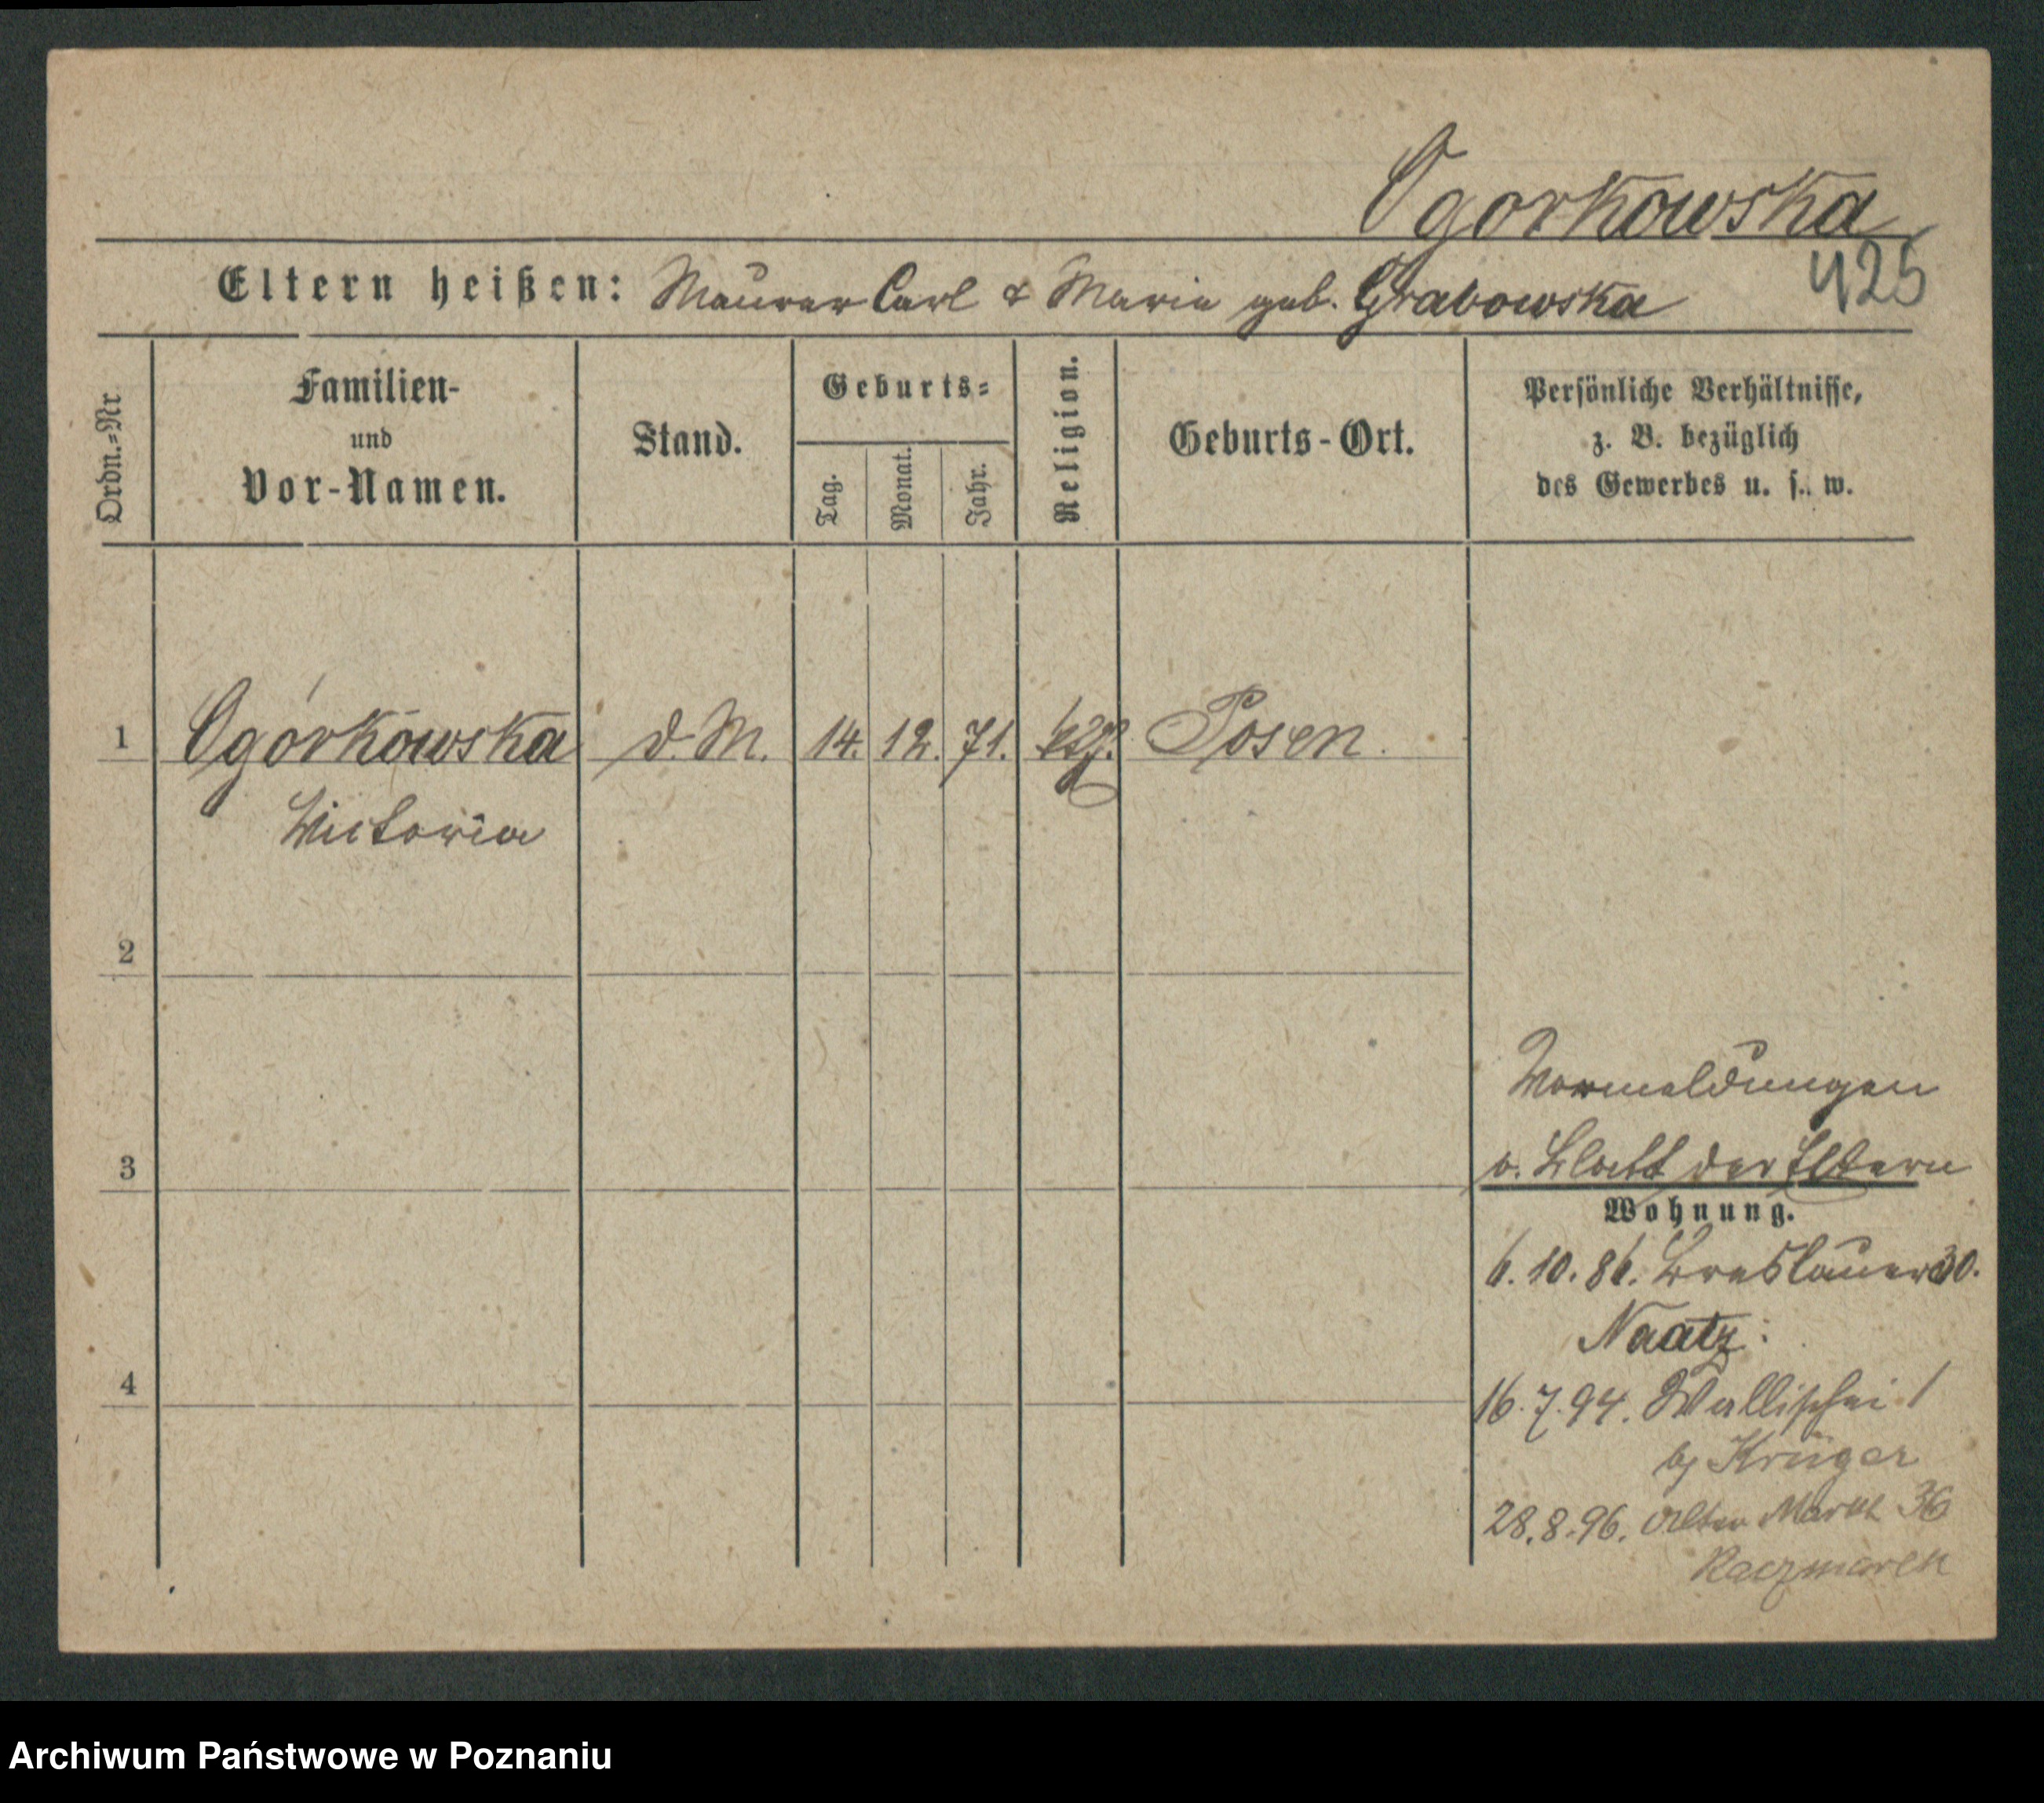 Ogorkowska
425
Eltern heißen: Maurer Carl & Marie geb. Grabowska
Ordn.-Nr
Familien-
und
Vor-Namen.
Stand.
Geburts-
Tag.
Monat.
Jahr.
Religion.
Geburts-Ort.
Persönliche Verhältnisse,
z. B. bezüglich
des Gewerbes u. s. w.
1 Ogórkowska d. M. 14. 12. 71. Posen.
Victoria
2
3
4
Vormeldungen
v. Blatt der Eltern
Wohnung.
6. 10. 86. Breslauer 30.
Naatz:
16. 7. 94. Wallischei 1
bj Krüger
28. 8. 96. Alter Markt 36
Kaczmarek
Archiwum Państwowe w Poznaniu